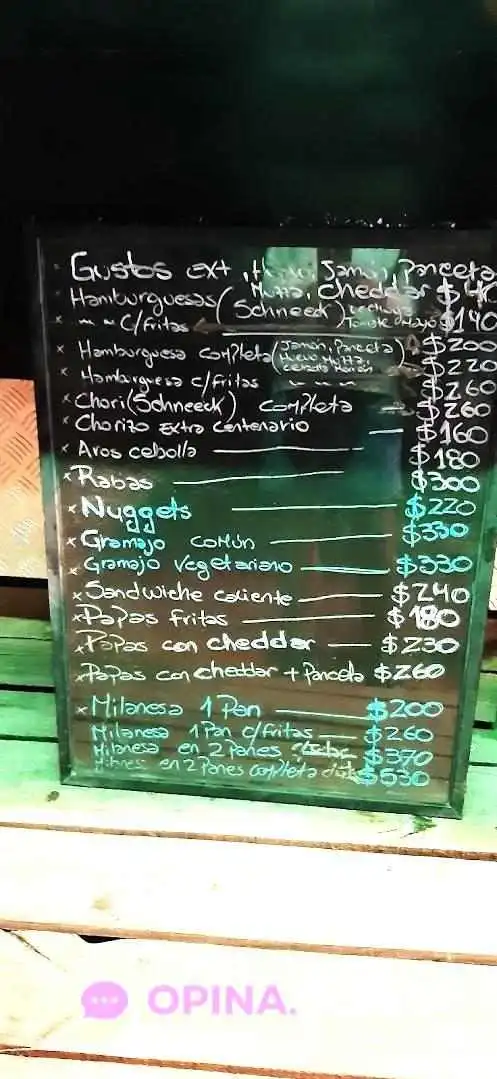 × Gustos ext, Huevo, Jamón, Panceta
Muzza, cheddar $4
Hamburguesas (Schneeck) Lechuga Tomate Mayo $140
× ~ ~ c/fritas $200
× Hamburguesa completa (Jamón, Panceta) Huevo Muzza, $220
× Hamburguesa c/fritas ~ ~ ~ $260
× Chori (Schneeck) completa $260
× Chorizo Extra Centenario $160
× Aros cebolla $180
× Rabas $300
× Nuggets $220
× Gramajo común $330
× Gramajo vegetariano $330
× Sandwiche caliente $240
× Papas fritas $180
× Papas con cheddar $230
× Papas con cheddar + Panceta $260
× Milanesa 1 Pan $200
Milanesa 1 Pan c/fritas $260
Milanesa en 2 Panes $370
Milanesa en 2 Panes completa $530
OPINA.